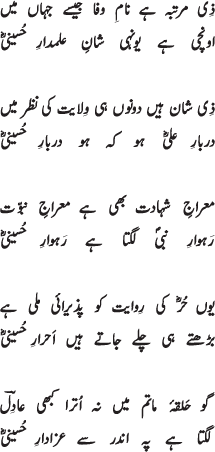 ذی مرتبہ ہے نامِ وفا جیسے جہاں میں
اونچی ہے یونہی شانِ علمدارِ حُسینیؓ
ذی شان ہیں دونوں ہی وِلایت کی نظر میں
دربارِ علیؓ ہو کہ ہو دربارِ حُسینیؓ
معراجِ شہادت بھی ہے معراجِ نبوّت
رَہوارِ نبیؐ لگتا ہے رَہوارِ حُسینیؓ
یوں حُرؓ کی روایت کو پذیرائی ملی ہے
بڑھتے ہی چلے جاتے ہیں اَحرارِ حُسینیؓ
گو حَلقۂ ماتم میں نہ اُترا کبھی عادِلؔ
لگتا ہے پہ اندر سے عزادارِ حُسینیؓ